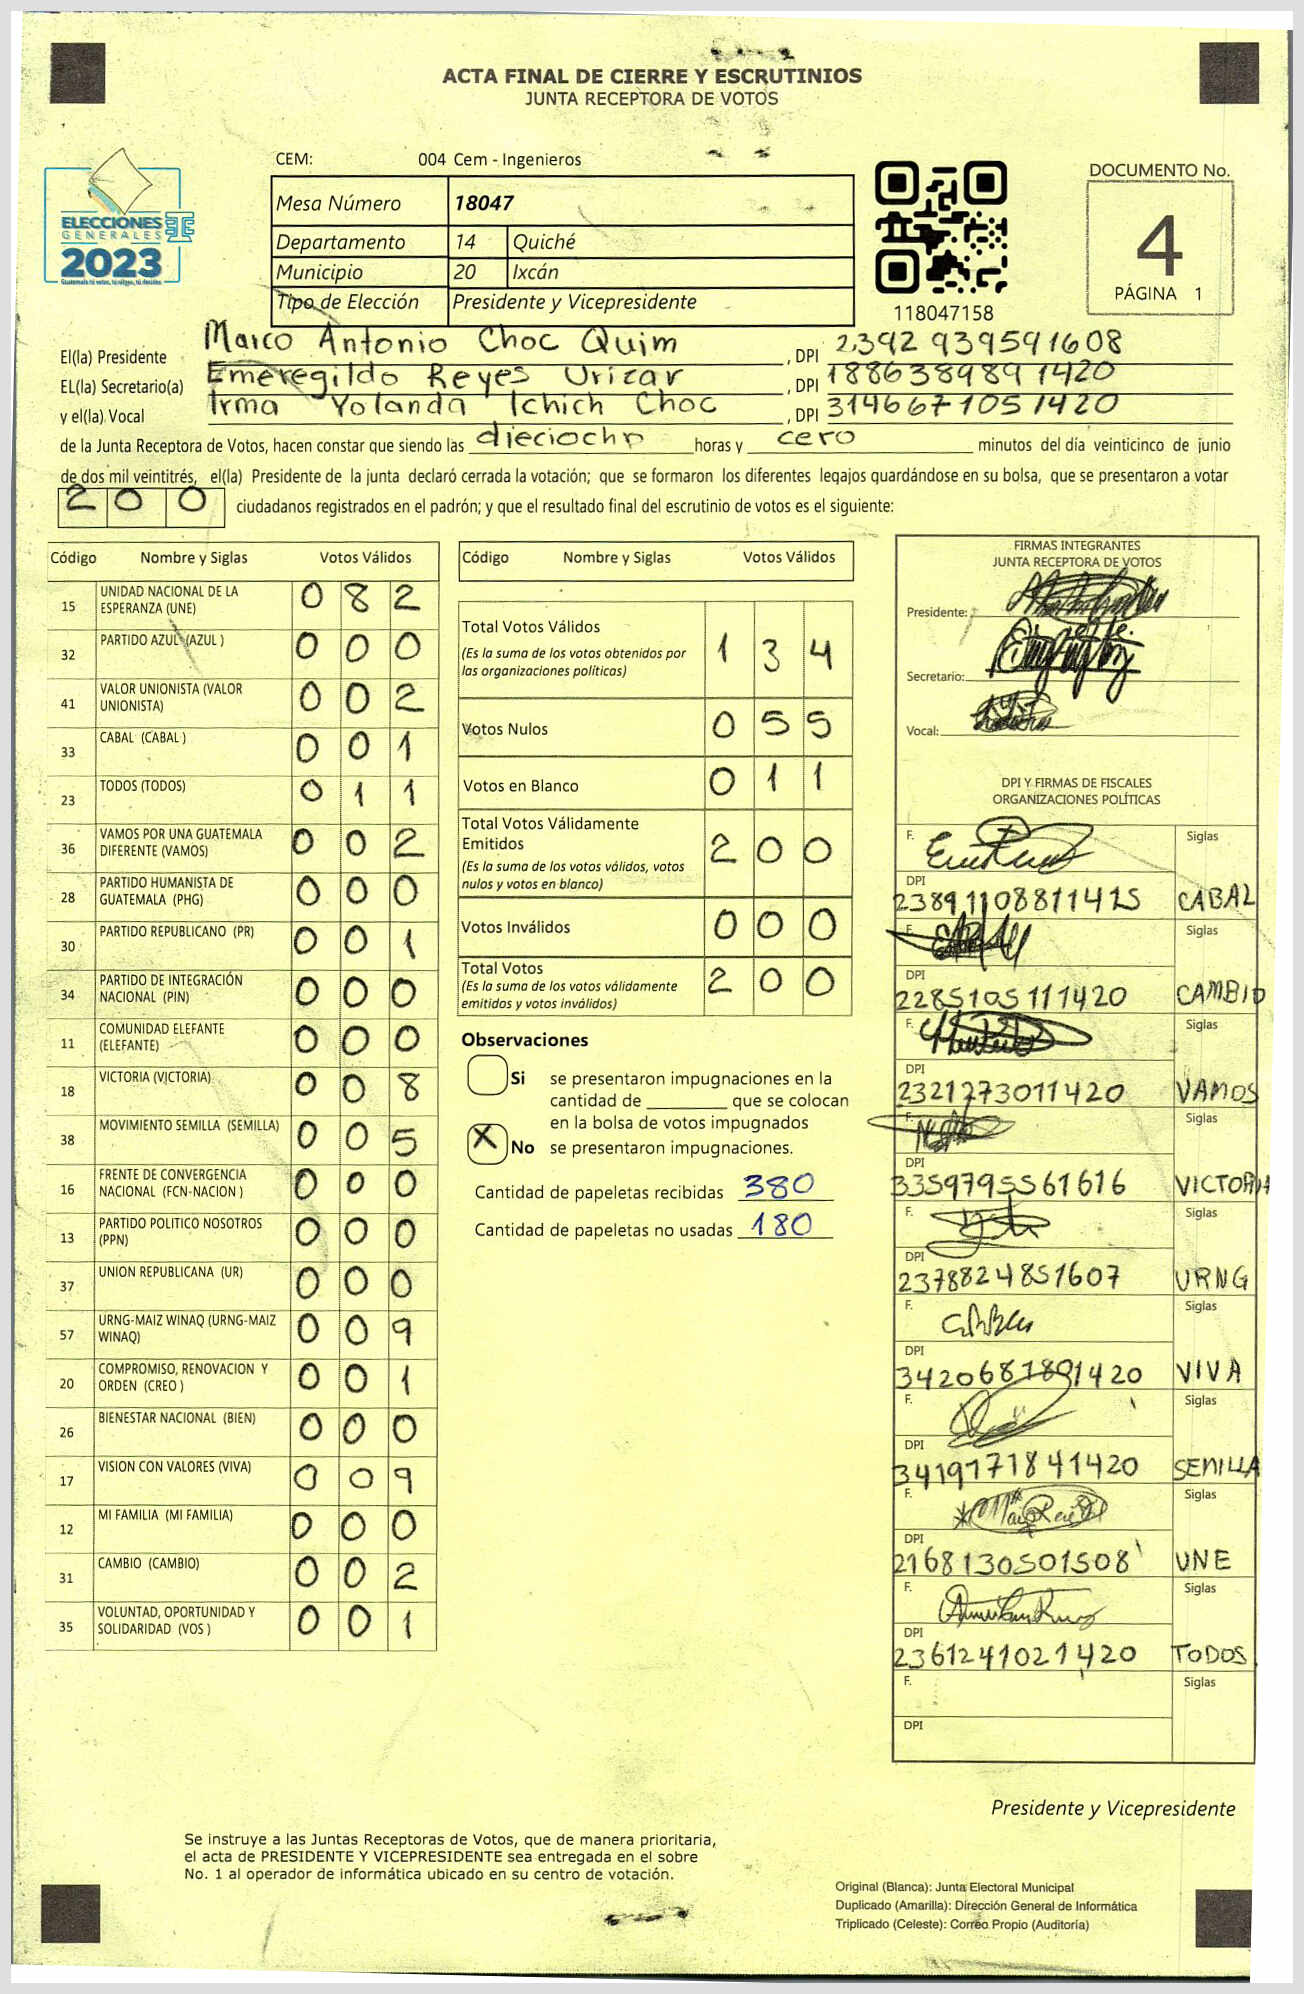 ACTA FINAL DE CIERRE Y ESCRUTINIOS
JUNTA RECEPTORA DE VOTOS
ELECCIONES
GENERALES
2023
Guatemala tú votas, tú eliges, tú decides
CEM: 004 Cem - Ingenieros
Mesa Número 18047
Departamento 14 Quiché
Municipio 20 Ixcán
Tipo de Elección Presidente y Vicepresidente
118047158
DOCUMENTO No.
4
PÁGINA 1
El(la) Presidente Marco Antonio Choc Quim , DPI 2392939591608
EL(la) Secretario(a) Emeregildo Reyes Urizar , DPI 1886389891420
y el(la) Vocal Irma Yolanda Ichich Choc , DPI 3146671051420
de la Junta Receptora de Votos, hacen constar que siendo las dieciocho horas y cero minutos del día veinticinco de junio
de dos mil veintitrés, el(la) Presidente de la junta declaró cerrada la votación; que se formaron los diferentes legajos guardándose en su bolsa, que se presentaron a votar
200 ciudadanos registrados en el padrón; y que el resultado final del escrutinio de votos es el siguiente:
Código Nombre y Siglas Votos Válidos
15 UNIDAD NACIONAL DE LA ESPERANZA (UNE) 082
32 PARTIDO AZUL (AZUL ) 000
41 VALOR UNIONISTA (VALOR UNIONISTA) 002
33 CABAL (CABAL ) 001
23 TODOS (TODOS) 011
36 VAMOS POR UNA GUATEMALA DIFERENTE (VAMOS) 002
28 PARTIDO HUMANISTA DE GUATEMALA (PHG) 000
30 PARTIDO REPUBLICANO (PR) 001
34 PARTIDO DE INTEGRACIÓN NACIONAL (PIN) 000
11 COMUNIDAD ELEFANTE (ELEFANTE) 000
18 VICTORIA (VICTORIA) 008
38 MOVIMIENTO SEMILLA (SEMILLA) 005
16 FRENTE DE CONVERGENCIA NACIONAL (FCN-NACION ) 000
13 PARTIDO POLITICO NOSOTROS (PPN) 000
37 UNION REPUBLICANA (UR) 000
57 URNG-MAIZ WINAQ (URNG-MAIZ WINAQ) 009
20 COMPROMISO, RENOVACION Y ORDEN (CREO ) 001
26 BIENESTAR NACIONAL (BIEN) 000
17 VISION CON VALORES (VIVA) 009
12 MI FAMILIA (MI FAMILIA) 000
31 CAMBIO (CAMBIO) 002
35 VOLUNTAD, OPORTUNIDAD Y SOLIDARIDAD (VOS ) 001
Código Nombre y Siglas Votos Válidos
Total Votos Válidos 134
(Es la suma de los votos obtenidos por
las organizaciones políticas)
Votos Nulos 055
Votos en Blanco 011
Total Votos Válidamente
Emitidos 200
(Es la suma de los votos válidos, votos
nulos y votos en blanco)
Votos Inválidos 000
Total Votos 200
(Es la suma de los votos válidamente
emitidos y votos inválidos)
Observaciones
Si se presentaron impugnaciones en la
cantidad de ________ que se colocan
en la bolsa de votos impugnados
X No se presentaron impugnaciones.
Cantidad de papeletas recibidas 380
Cantidad de papeletas no usadas 180
FIRMAS INTEGRANTES
JUNTA RECEPTORA DE VOTOS
Presidente:
Secretario:
Vocal:
DPI Y FIRMAS DE FISCALES
ORGANIZACIONES POLÍTICAS
F. Siglas
DPI
CABAL
F. Siglas
DPI
2285105111420 CAMBIO
F. Siglas
DPI
2321273011420 VAMOS
F. Siglas
DPI
3359795561616 VICTORIA
F. Siglas
DPI
2378824851607 URNG
F. Siglas
DPI
3420681891420 VIVA
F. Siglas
DPI
3419171841420 SEMILLA
F. Siglas
DPI
2168130501508 UNE
F. Siglas
DPI
2361241021420 TODOS
F. Siglas
DPI
Presidente y Vicepresidente
Se instruye a las Juntas Receptoras de Votos, que de manera prioritaria,
el acta de PRESIDENTE Y VICEPRESIDENTE sea entregada en el sobre
No. 1 al operador de informática ubicado en su centro de votación.
Original (Blanca): Junta Electoral Municipal
Duplicado (Amarilla): Dirección General de Informática
Triplicado (Celeste): Correo Propio (Auditoría)